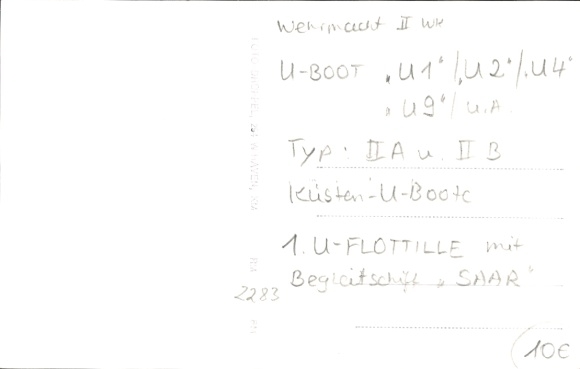 Wehrmacht II WK
U-BOOT „U1“/„U2“/„U4“
„U9“/ u.A.
Typ: II A u. II B
Küsten-U-Boote
1. U-FLOTTILLE mit
Begleitschiff „SAAR“
2283
10€